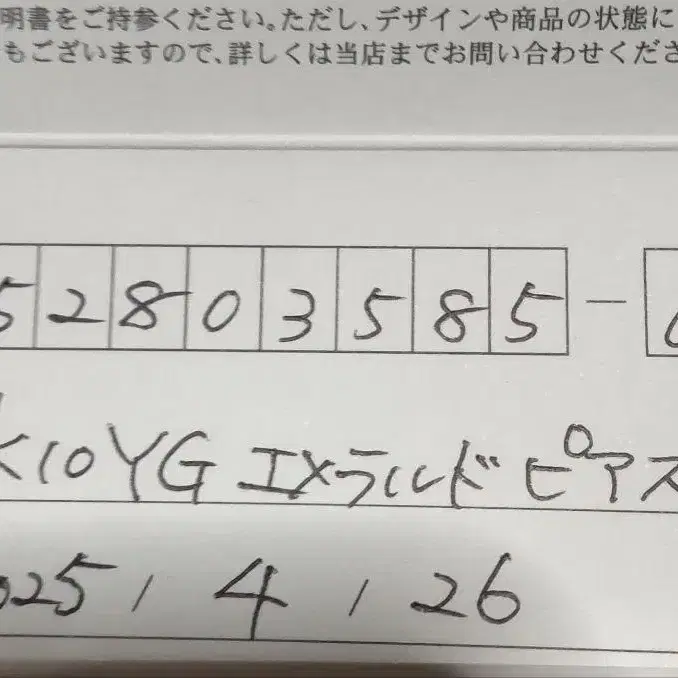 明書をご持参ください。ただし、デザインや商品の状態に
もございますので、詳しくは当店までお問い合わせくださ
52803585-
K10YG エメラルドピアス
025, 4, 26